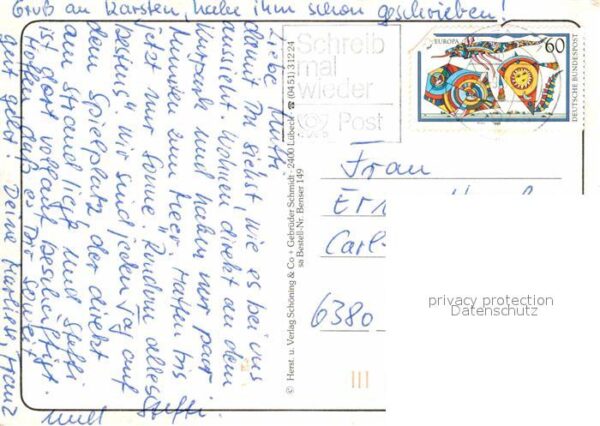 Gruß an Karsten, habe ihm schon geschrieben!
Liebe Mutti
damit Du siehst, wie es bei uns
aussieht. Wohnen direkt an dem
und haben nur paar
Minuten zum Meer. Hatten bis
jetzt nur Sonne. Kindern alles
bestens, wir sind jeden Tag auf
dem Spielplatz, der direkt
am Strand liegt und Steffi
ist dort vollauf beschäftigt.
Hoffen daß es Dir soweit
gut geht! Deine Marlies, Franz
und Steffi.
© Herst. u. Verlag Schöning & Co + Gebrüder Schmidt · 2400 Lübeck ☎ (04 51) 3 12 24
sa Bestell-Nr. Benser 149
Schreib
mal
wieder
Post
EUROPA
60
DEUTSCHE BUNDESPOST
Frau
Carl-
6380
privacy protection
Datenschutz